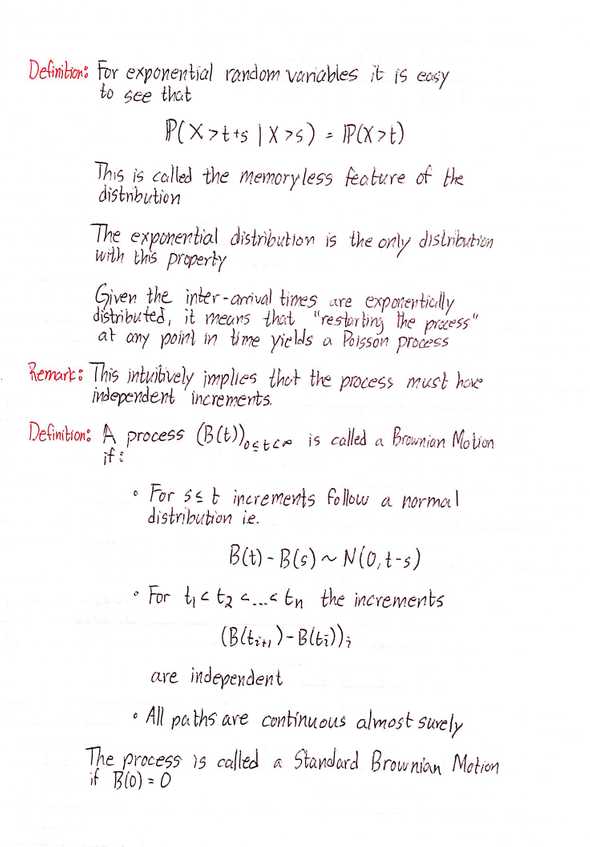 Definition: For exponential random variables it is easy
to see that
ℙ(X>t+s | X>s) = ℙ(X>t)
This is called the memoryless feature of the
distribution
The exponential distribution is the only distribution
with this property
Given the inter-arrival times are exponentially
distributed, it means that "restarting the process"
at any point in time yields a Poisson process
Remark: This intuitively implies that the process must have
independent increments.
Definition: A process (B(t))₀≤t<∞ is called a Brownian Motion
if:
• For s≤t increments follow a normal
distribution ie.
B(t)-B(s) ~ N(0,t-s)
• For t₁<t₂<...<tₙ the increments
(B(tᵢ₊₁)-B(tᵢ))ᵢ
are independent
• All paths are continuous almost surely
The process is called a Standard Brownian Motion
if B(0)=0